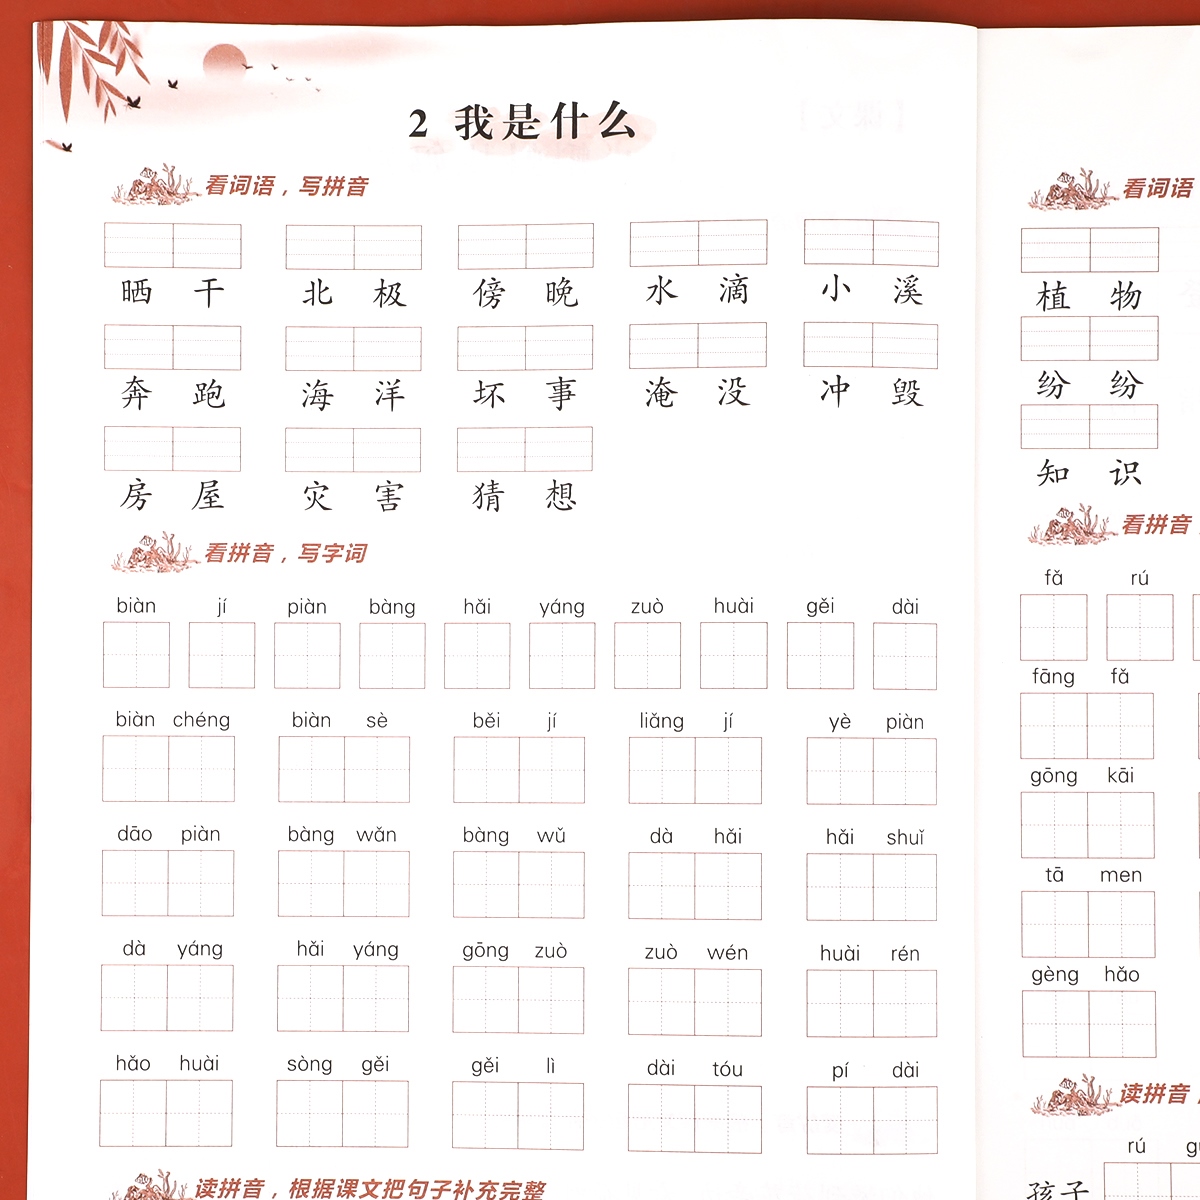 2 我是什么
看词语，写拼音
晒 干 北 极 傍 晚 水 滴 小 溪
奔 跑 海 洋 坏 事 淹 没 冲 毁
房 屋 灾 害 猜 想
看拼音，写字词
biàn jí piàn bàng hǎi yáng zuò huài gěi dài
biàn chéng biàn sè běi jí liǎng jí yè piàn
dāo piàn bàng wǎn bàng wǔ dà hǎi hǎi shuǐ
dà yáng hǎi yáng gōng zuò zuò wén huài rén
hǎo huài sòng gěi gěi lì dài tóu pí dài
读拼音，根据课文把句子补充完整
看词语
植 物
纷 纷
知 识
看拼音，
fǎ rú
fāng fǎ
gōng kāi
tā men
gèng hǎo
读拼音，
rú
孩子